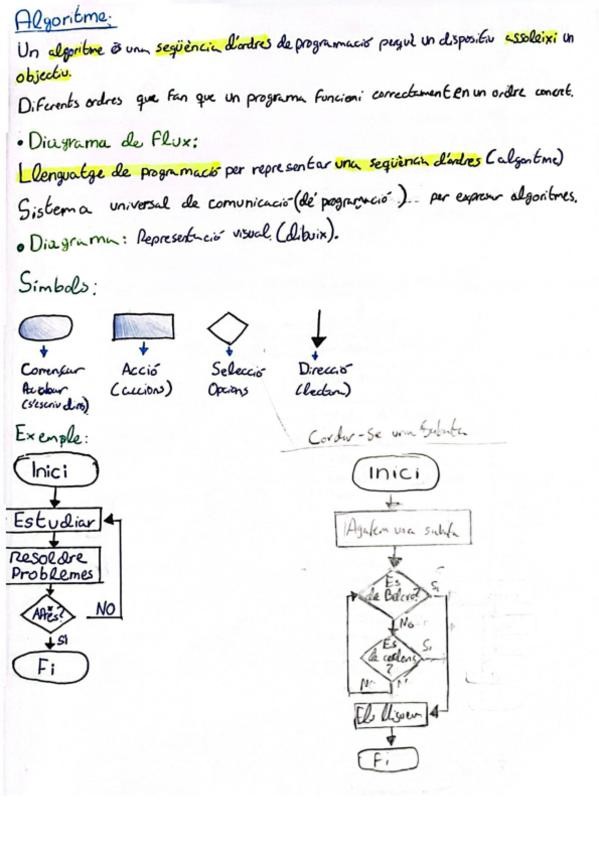 Algoritme:
Un algoritme és una seqüència d'ordres de programació perquè un dispositiu assoleixi un
objectiu.
Diferents ordres que fan que un programa funcioni correctament en un ordre concret.
• Diagrama de flux:
Llenguatge de programació per representar una seqüència d'ordres (algoritme)
Sistema universal de comunicació (de programació)... per expresar algoritmes.
• Diagrama: Representació visual (dibuix).
Símbols:
Començar Acció Selecció Direcció
Acabar (accions) Opcions (lectura)
(s'escriu dins)
Exemple:
Cordar-se una sabata
Inici
Estudiar
Resoldre
Problemes
NO
SI
Fi
Inici
Agafem una sabata
És
de Velcro?
Si
No
És
de cordons
?
Si
No
Fi